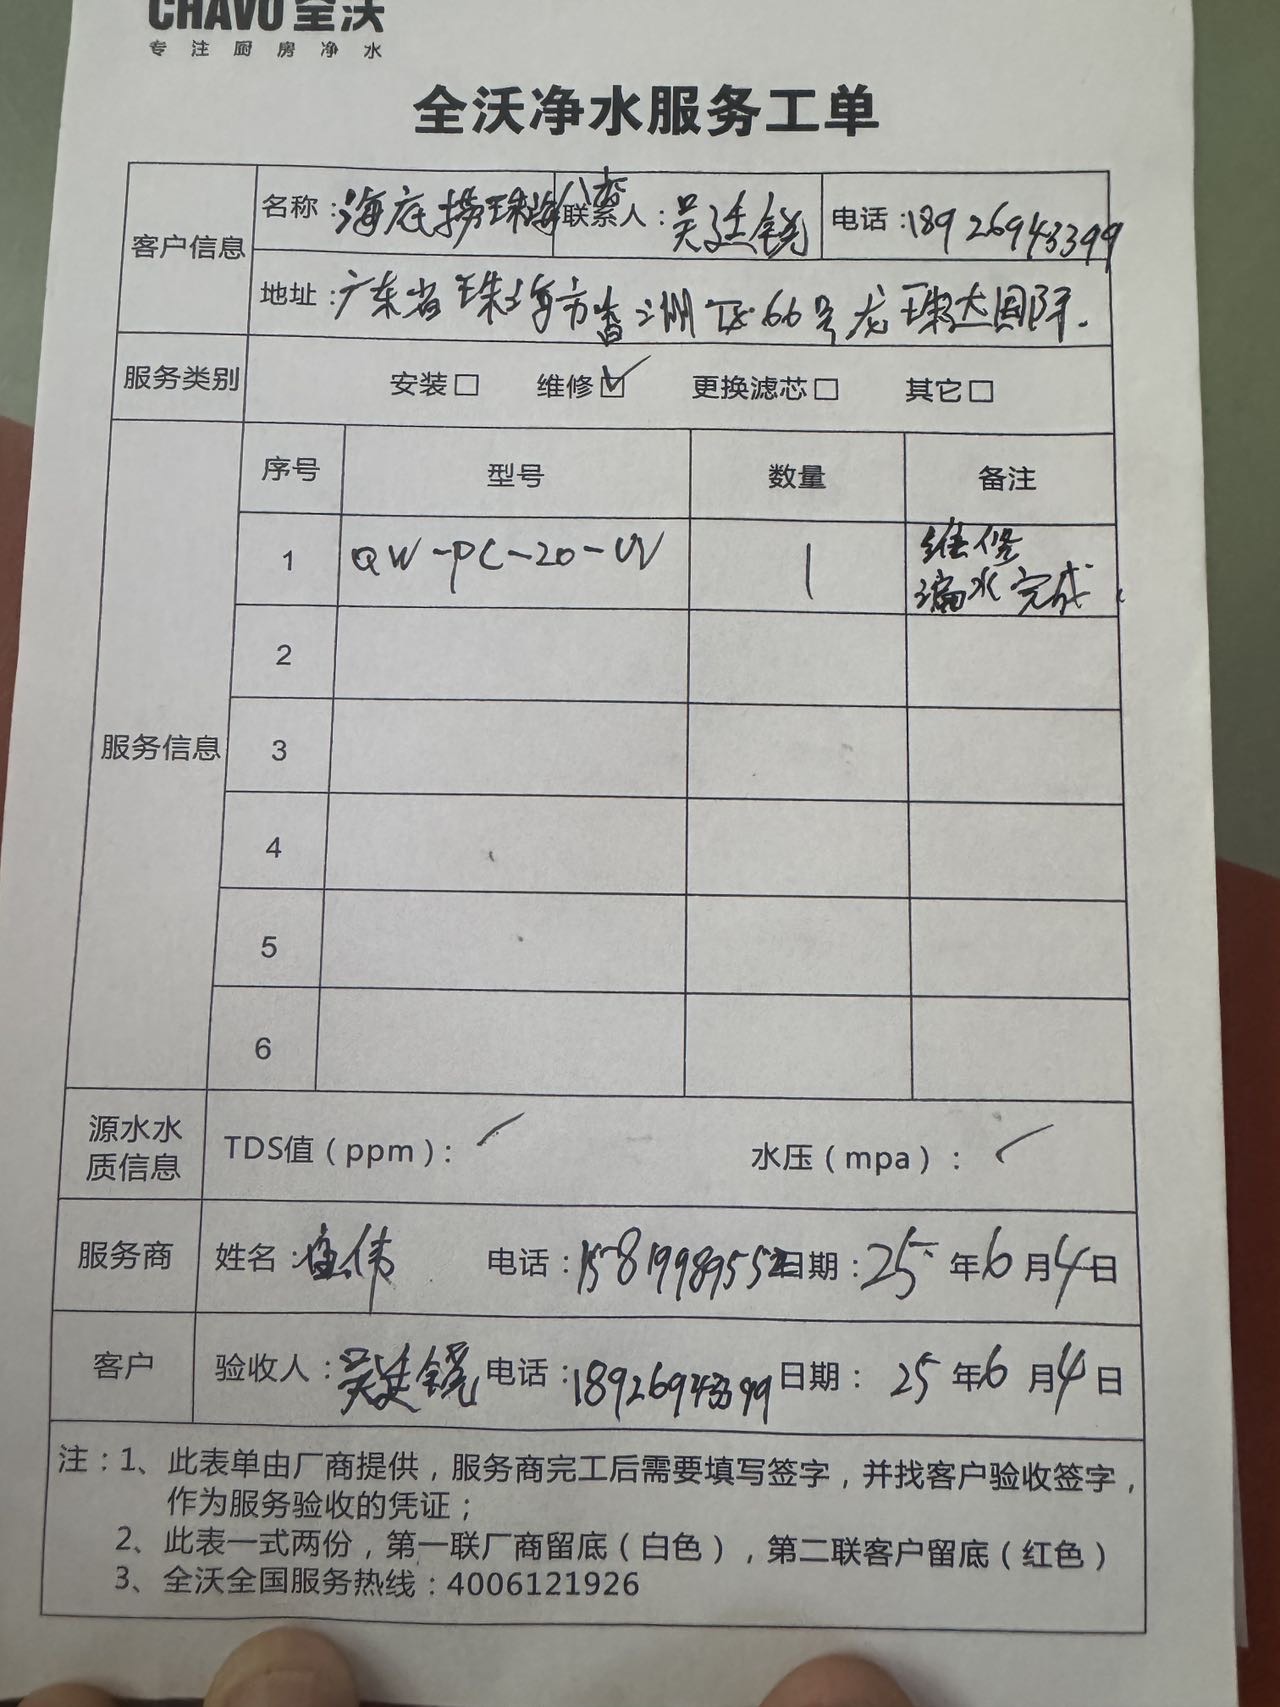 CHAVO 全沃
专注厨房净水
全沃净水服务工单
客户信息 名称：海底捞珠海 联系人：吴廷锐 电话：18926943399
地址：广东省珠海市香洲区66号龙珠达国际.
服务类别 安装□ 维修☑ 更换滤芯□ 其它□
服务信息 序号 型号 数量 备注
1 QW-PC-20-UV 1 维修
漏水完成
2
3
4
5
6
源水水质信息 TDS值（ppm）： 水压（mpa）：
服务商 姓名： 电话：15819989552 日期：25年6月4日
客户 验收人：吴廷锐 电话：18926943399 日期：25年6月4日
注：1、此表单由厂商提供，服务商完工后需要填写签字，并找客户验收签字，
作为服务验收的凭证；
2、此表一式两份，第一联厂商留底（白色），第二联客户留底（红色）
3、全沃全国服务热线：4006121926